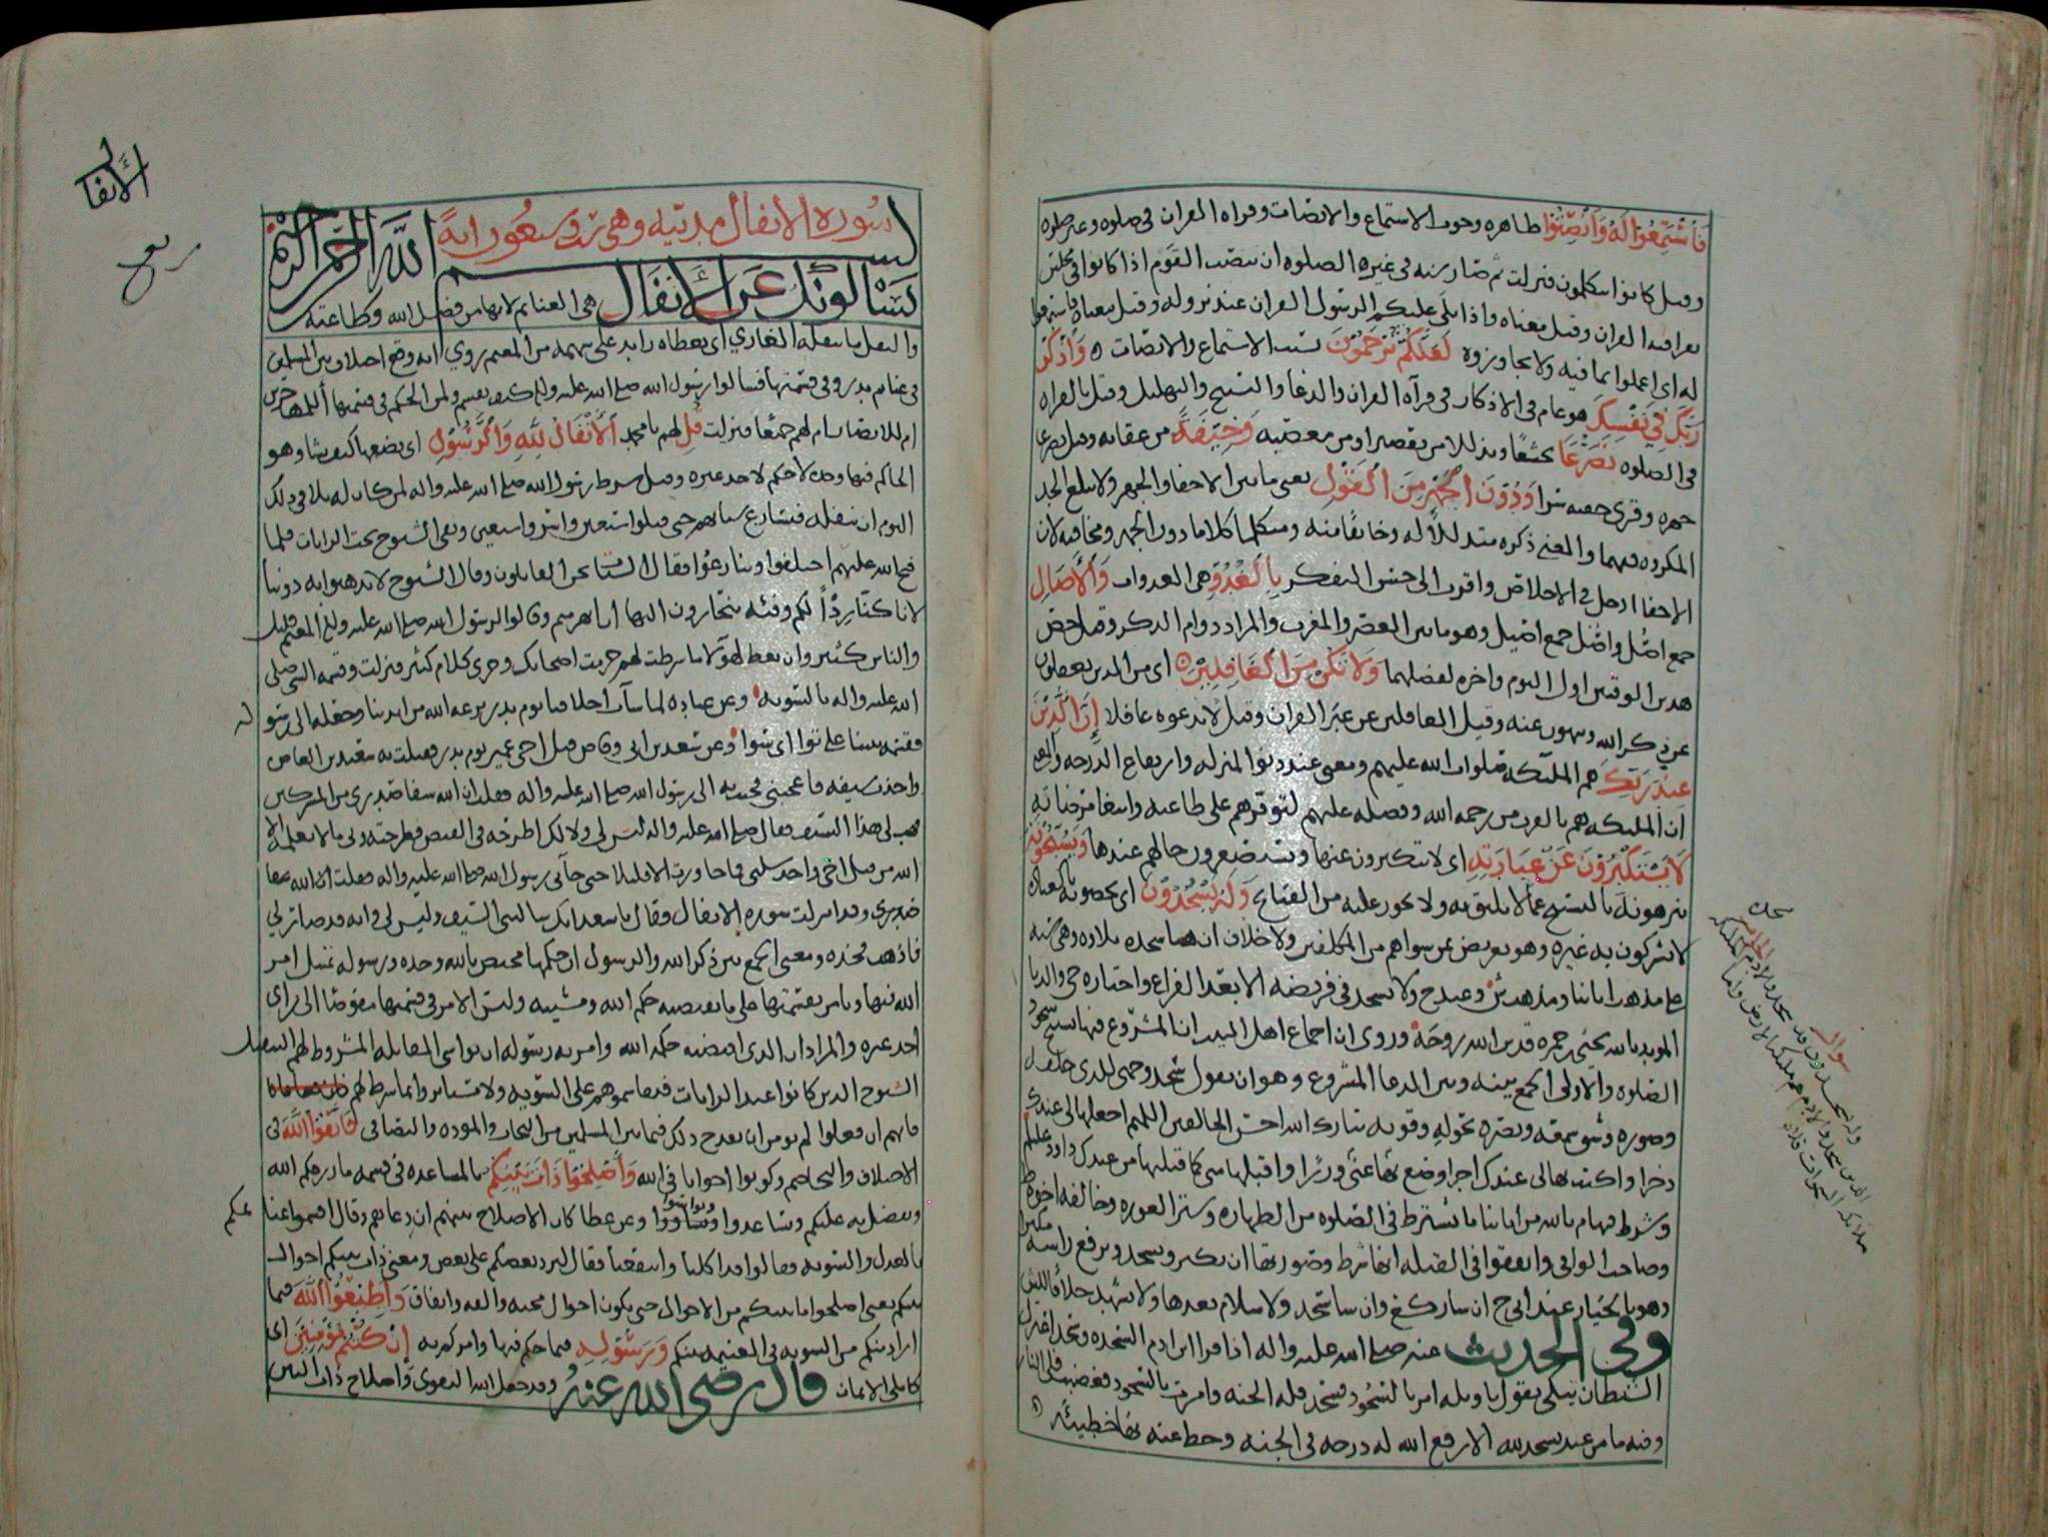 فَاسْتَمِعُوا لَهُ وَأَنْصِتُوا ظاهره وجوب الاستماع والانصات وقراه القران في صلوه وغير صلوه
وقيل كانوا يتكلمون فنزلت ثم صار سنه في غير الصلوه ان ينصت القوم اذا كانوا في مجلس
يقرا فيه القران وقيل معناه واذا تلى عليكم الرسول القران عند نزوله وقيل معناه فاستمعوا
له اي اعملوا بما فيه ولا تجاوزوه لَعَلَّكُمْ تُرْحَمُوْنَ بسبب الاستماع والانصات وَاذْكُرْ
رَبَّكَ فِي نَفْسِكَ هو عام في الاذكار في قرآه القران والدعا والتسبيح والتهليل وقيل بالقراه
في الصلوه تَضَرُّعًا تخشعًا وتذللا من تقصير او من معصيه وَخِيْفَةً من عقابه
وَدُوْنَ الْجَهْرِ مِنَ الْقَوْلِ يعني ما بين الاخفا والجهر ولا يبلغ الحد
المكروه فيهما والمعنى ذكره متذللاً له وخائفًا منه ومتكلما كلاما دون الجهر ومخافته لان
الاخفا ادخل في الاخلاص واقرب الى حسن التفكر بِالْغُدُوِّ هي الغدوات وَالْآصَالِ
جمع اصُل واصُل جمع اصيل وهو ما بين العصر والمغرب والمراد دوام الذكر وقيل خص
هذين الوقتين اول اليوم واخره لفضلهما وَلَا تَكُنْ مِنَ الْغَافِلِيْنَ اي من الذين يغفلون
عن ذكر الله ويسهون عنه وقيل الغافلين عن عبَر القران وقيل لا تدعوه غافلا إِنَّ الَّذِيْنَ
عِنْدَ رَبِّكَ هم الملئكه صلوات الله عليهم ومعنى عند دنوا المنزله وارتفاع الدرجه
ان الملئكه هم بالقرب من رحمه الله وفضله عليهم لتوفرهم على طاعته وابتغا مرضاته
لَا يَسْتَكْبِرُوْنَ عَنْ عِبَادَتِهِ اي لا يتكبرون عنها وَيُسَبِّحُوْنَهُ
ينزهونه بالتسبيح عما لا يليق به ولا يجوز عليه من القبايح وَلَهُ يَسْجُدُوْنَ اي يخصونه بالعباده
لا يشركون به غيره وهو تعريض بمن سواهم من المكلفين ولا خلاف ان هنا سجده تلاوه وهي سنه
ولا يسجد في فريضه الا بعد الفراغ واختاره
المويد بالله يحيى بن حمزه قدس الله روحه وروى ان اجماع اهل البيت ان المشروع فيها
الصلوه والاولى الجمع بينه وبين الدعا المشروع وهو ان يقول سجد وجهي للذي خلقه
وصوره وشق سمعه وبصره بحوله وقوته تبارك الله احسن الخالقين اللهم اجعلها لي عندك
ذخرا واكتب لي عندك اجرا وضع بها عني وزرًا واقبلها مني كما قبلتها من عبدك داود
وشرط فيها م بالله من ما يشترط في الصلوه من الطهاره وستر العوره
وصاحب الوافي واتفقوا في القبله انها شرط وصورتها ان يكبر ويسجد ويرفع راسه
وهو بالخيار عند ابي ح ان شا ركع وان شا سجد ولا سلام بعدها ولا تشهد
وفي الحديث عنه صلى الله عليه واله اذا قرا ابن ادم السجده وسجد اعتزل
الشيطان يبكي يقول يا ويله امر بالسجود فسجد فله الجنه وامرت بالسجود فعصيت فلي النار
وفيه ما من عبد يسجد لله الا رفع الله له درجه في الجنه وحط عنه بها خطيئه
سجده
سوال
الأنفال
ربع
سوره الانفال مدنيه وهي سبعون ايه
بسم الله الرحمن الرحيم
يَسْأَلُونَكَ عَنِ الْأَنْفَالِ هي الغنايم لانها من فضل الله وعطاعته
والنفل ما ينفله الغازي اي يعطاه زايد على سهمه من المغنم روي انه وقع اختلاف بين المسلمين
في غنايم بدر وفي قسمتها فسالوا رسول الله صلى الله عليه واله كيف تقسم ولمن الحكم في قسمتها أللمهاجرين
ام للانصار ام لهم جميعًا فنزلت قُلِ لهم يا محمد الْأَنْفَالُ لِلَّهِ وَالرَّسُوْلِ اي يضعها كيف يشا وهو
الحاكم فيها وحده لا حكم لاحد غيره وقيل شرط رسول الله صلى الله عليه واله لمن كان له بلا في ذلك
اليوم ان ينفله فتسارع شبانهم حتى قتلوا سبعين واسروا سبعين وبقي الشيوخ تحت الرايات فلما
فتح الله عليهم اختلفوا وتنازعوا فقال الشبان نحن المقاتلون وقال الشيوخ لا تذهبوا به دوننا
لانا كنا رِدْأً لكم وفئه تنحازون اليها ان انهزمتم وقالوا لرسول الله صلى الله عليه واله المغنم قليل
والناس كثير وان تعط هؤلا ما شرطت لهم حرمت اصحابك وجرى كلام كثير فنزلت وقسمه النبي صلى
الله عليه واله بالسويه وعن عباده لما سات اخلاقنا يوم بدر نزعه الله من ايدينا وجعله الى رسوله
فقسمه بيننا على سوا وعن سعد بن ابي وقاص قتل اخي عمير يوم بدر فقتلت به سعيد بن العاص
واخذت سيفه فاعجبني فجئت به الى رسول الله صلى الله عليه واله فقلت ان الله شفا صدري من المشركين
فهب لي هذا السيف فقال صلى الله عليه واله ليس لي ولا لك اطرحه في القبض فطرحته وبي ما لا يعلمه الا
الله من قتل اخي واخذ سلبي فما جاوزت الا قليلا حتى جآني رسول الله صلى الله عليه واله
وقد انزلت سوره الانفال فقال يا سعد انك سالتني السيف وليس لي وانه قد صار لي
فاذهب فخذه ومعنى الجمع بين ذكر الله والرسول ان حكمها مختص بالله وحده ورسوله يمتثل امر
الله فيها ويامر بقسمتها على ما تقتضيه حكمه الله ومشيته وليس الامر في قسمتها مفوضًا الى راي
احد غيره والمراد ان الذي اقتضته حكمه الله وامر به رسوله ان يواسي المقاتله المشروط لهم التنفيل
الشيوخ الذين كانوا عند الرايات فيقاسموهم على السويه ولا يستاثروا بما شرط لهم
فانهم ان فعلوا لم يومن ان يقدح ذلك فيما بين المسلمين من التحاب والموده والتصافي فَاتَّقُوْا اللهَ في
الاختلاف والتخاصم وكونوا اخوانا في الله وَأَصْلِحُوْا ذَاتَ بَيْنِكُمْ بالمساعده في قسمه ما رزقكم الله
وتفضل به عليكم وعن عطا كان الاصلاح بينهم ان دعاهم وقال اقسموا غنايمكم
بالعدل والسويه فقالوا قد اكلنا وانفقنا فقال ليرد بعضكم على بعض ومعنى ذات بينكم احوال
بينكم يعني اصلحوا ما بينكم من الاحوال حتى تكون احوال محبه والفه واتفاق وَأَطِيْعُوْا اللهَ فيما
اراد منكم من السويه في الغنيمه بينكم وَرَسُوْلِهِ فيما حكم فيها وامركم به إِنْ كُنْتُمْ مُؤْمِنِيْنَ اي
كاملي الايمان قال رضي الله عنه وقد جعل الله التقوى واصلاح ذات البين